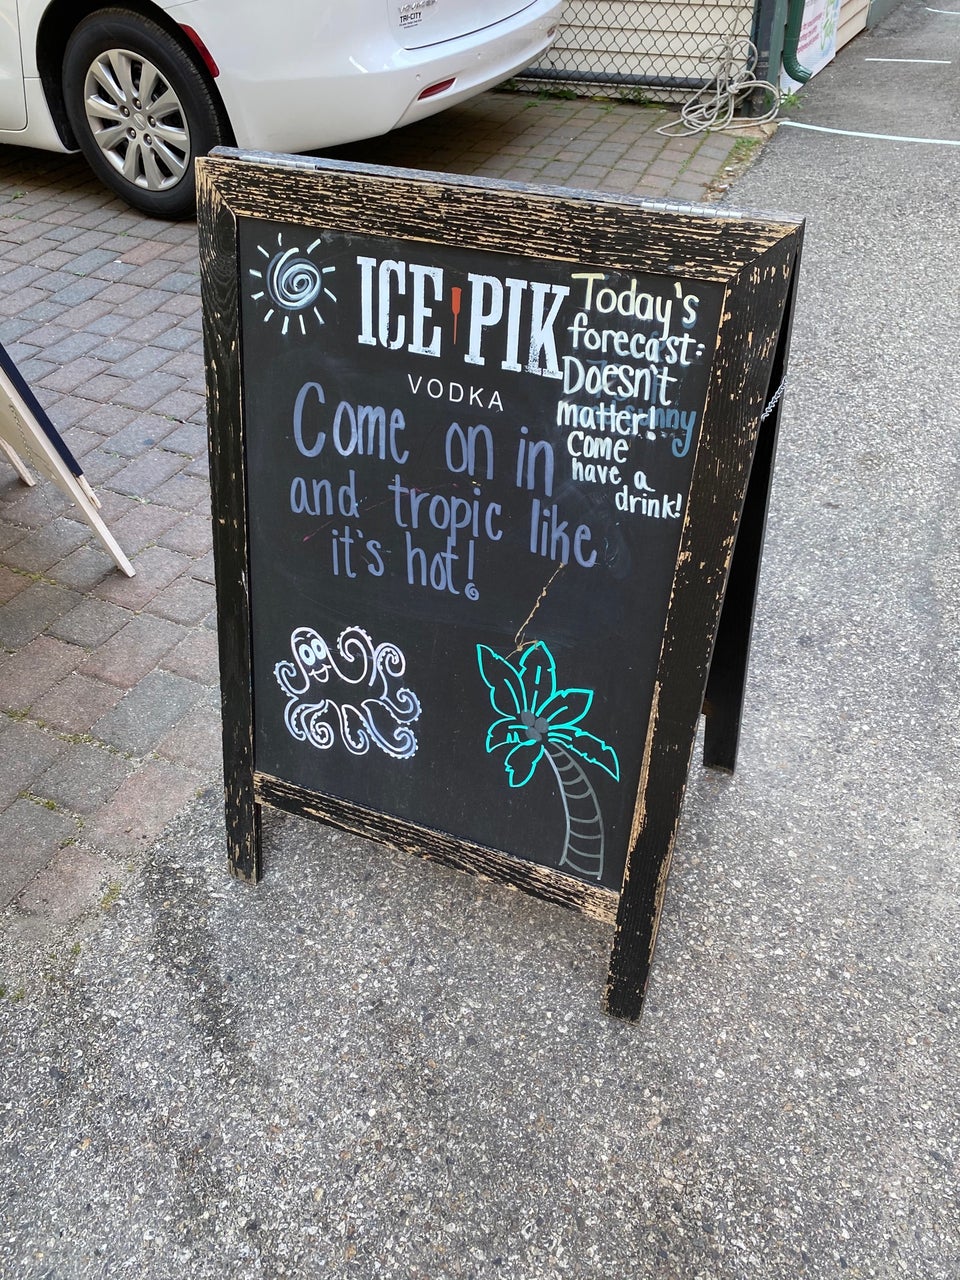 TRI-CITY
ICE PIK
VODKA
Today's
forecast:
Doesn't
matter!
Come
have a
drink!
Come on in
and tropic like
it's hot!